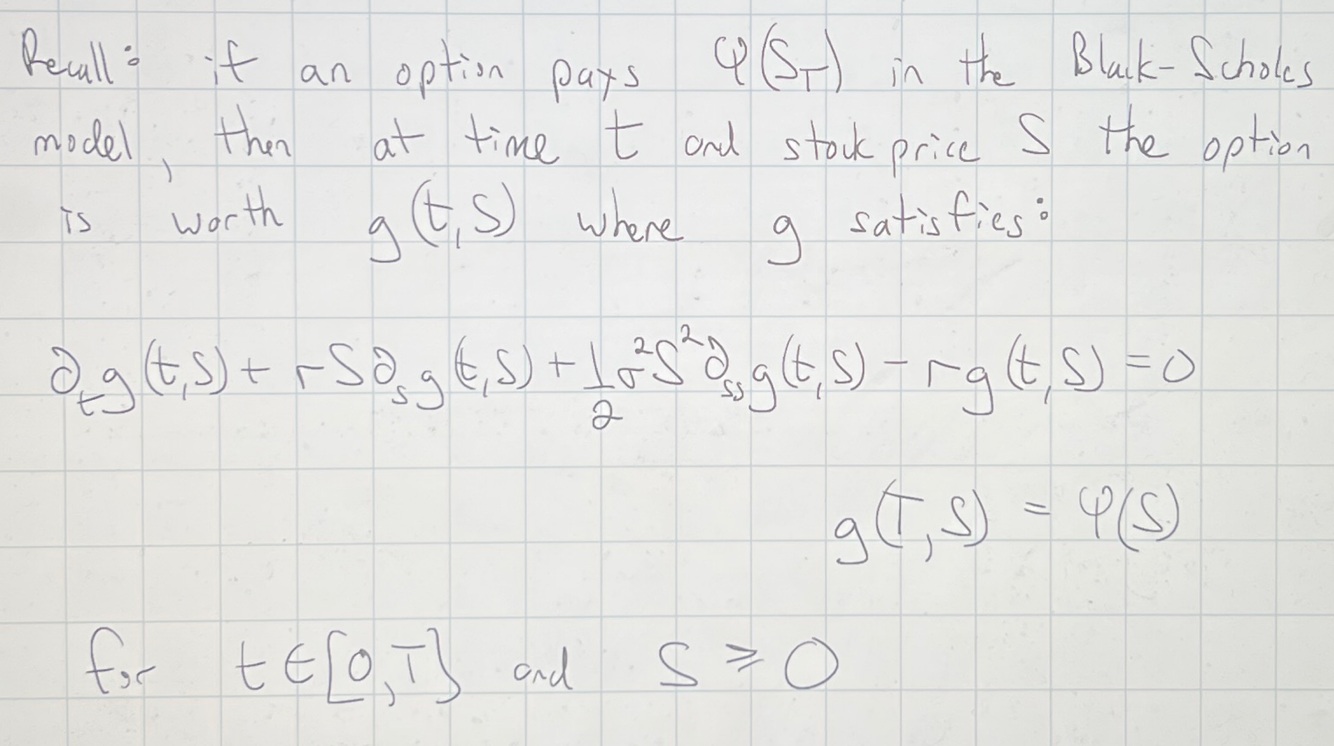 Recall: if an option pays φ(S_T) in the Black-Scholes
model, then at time t and stock price S the option
is worth g(t,S) where g satisfies:
∂_t g(t,S) + rS∂_s g(t,S) + 1/2 σ²S²∂_ss g(t,S) - rg(t,S) = 0
g(T,S) = φ(S)
for t∈[0,T] and S ⩾ 0